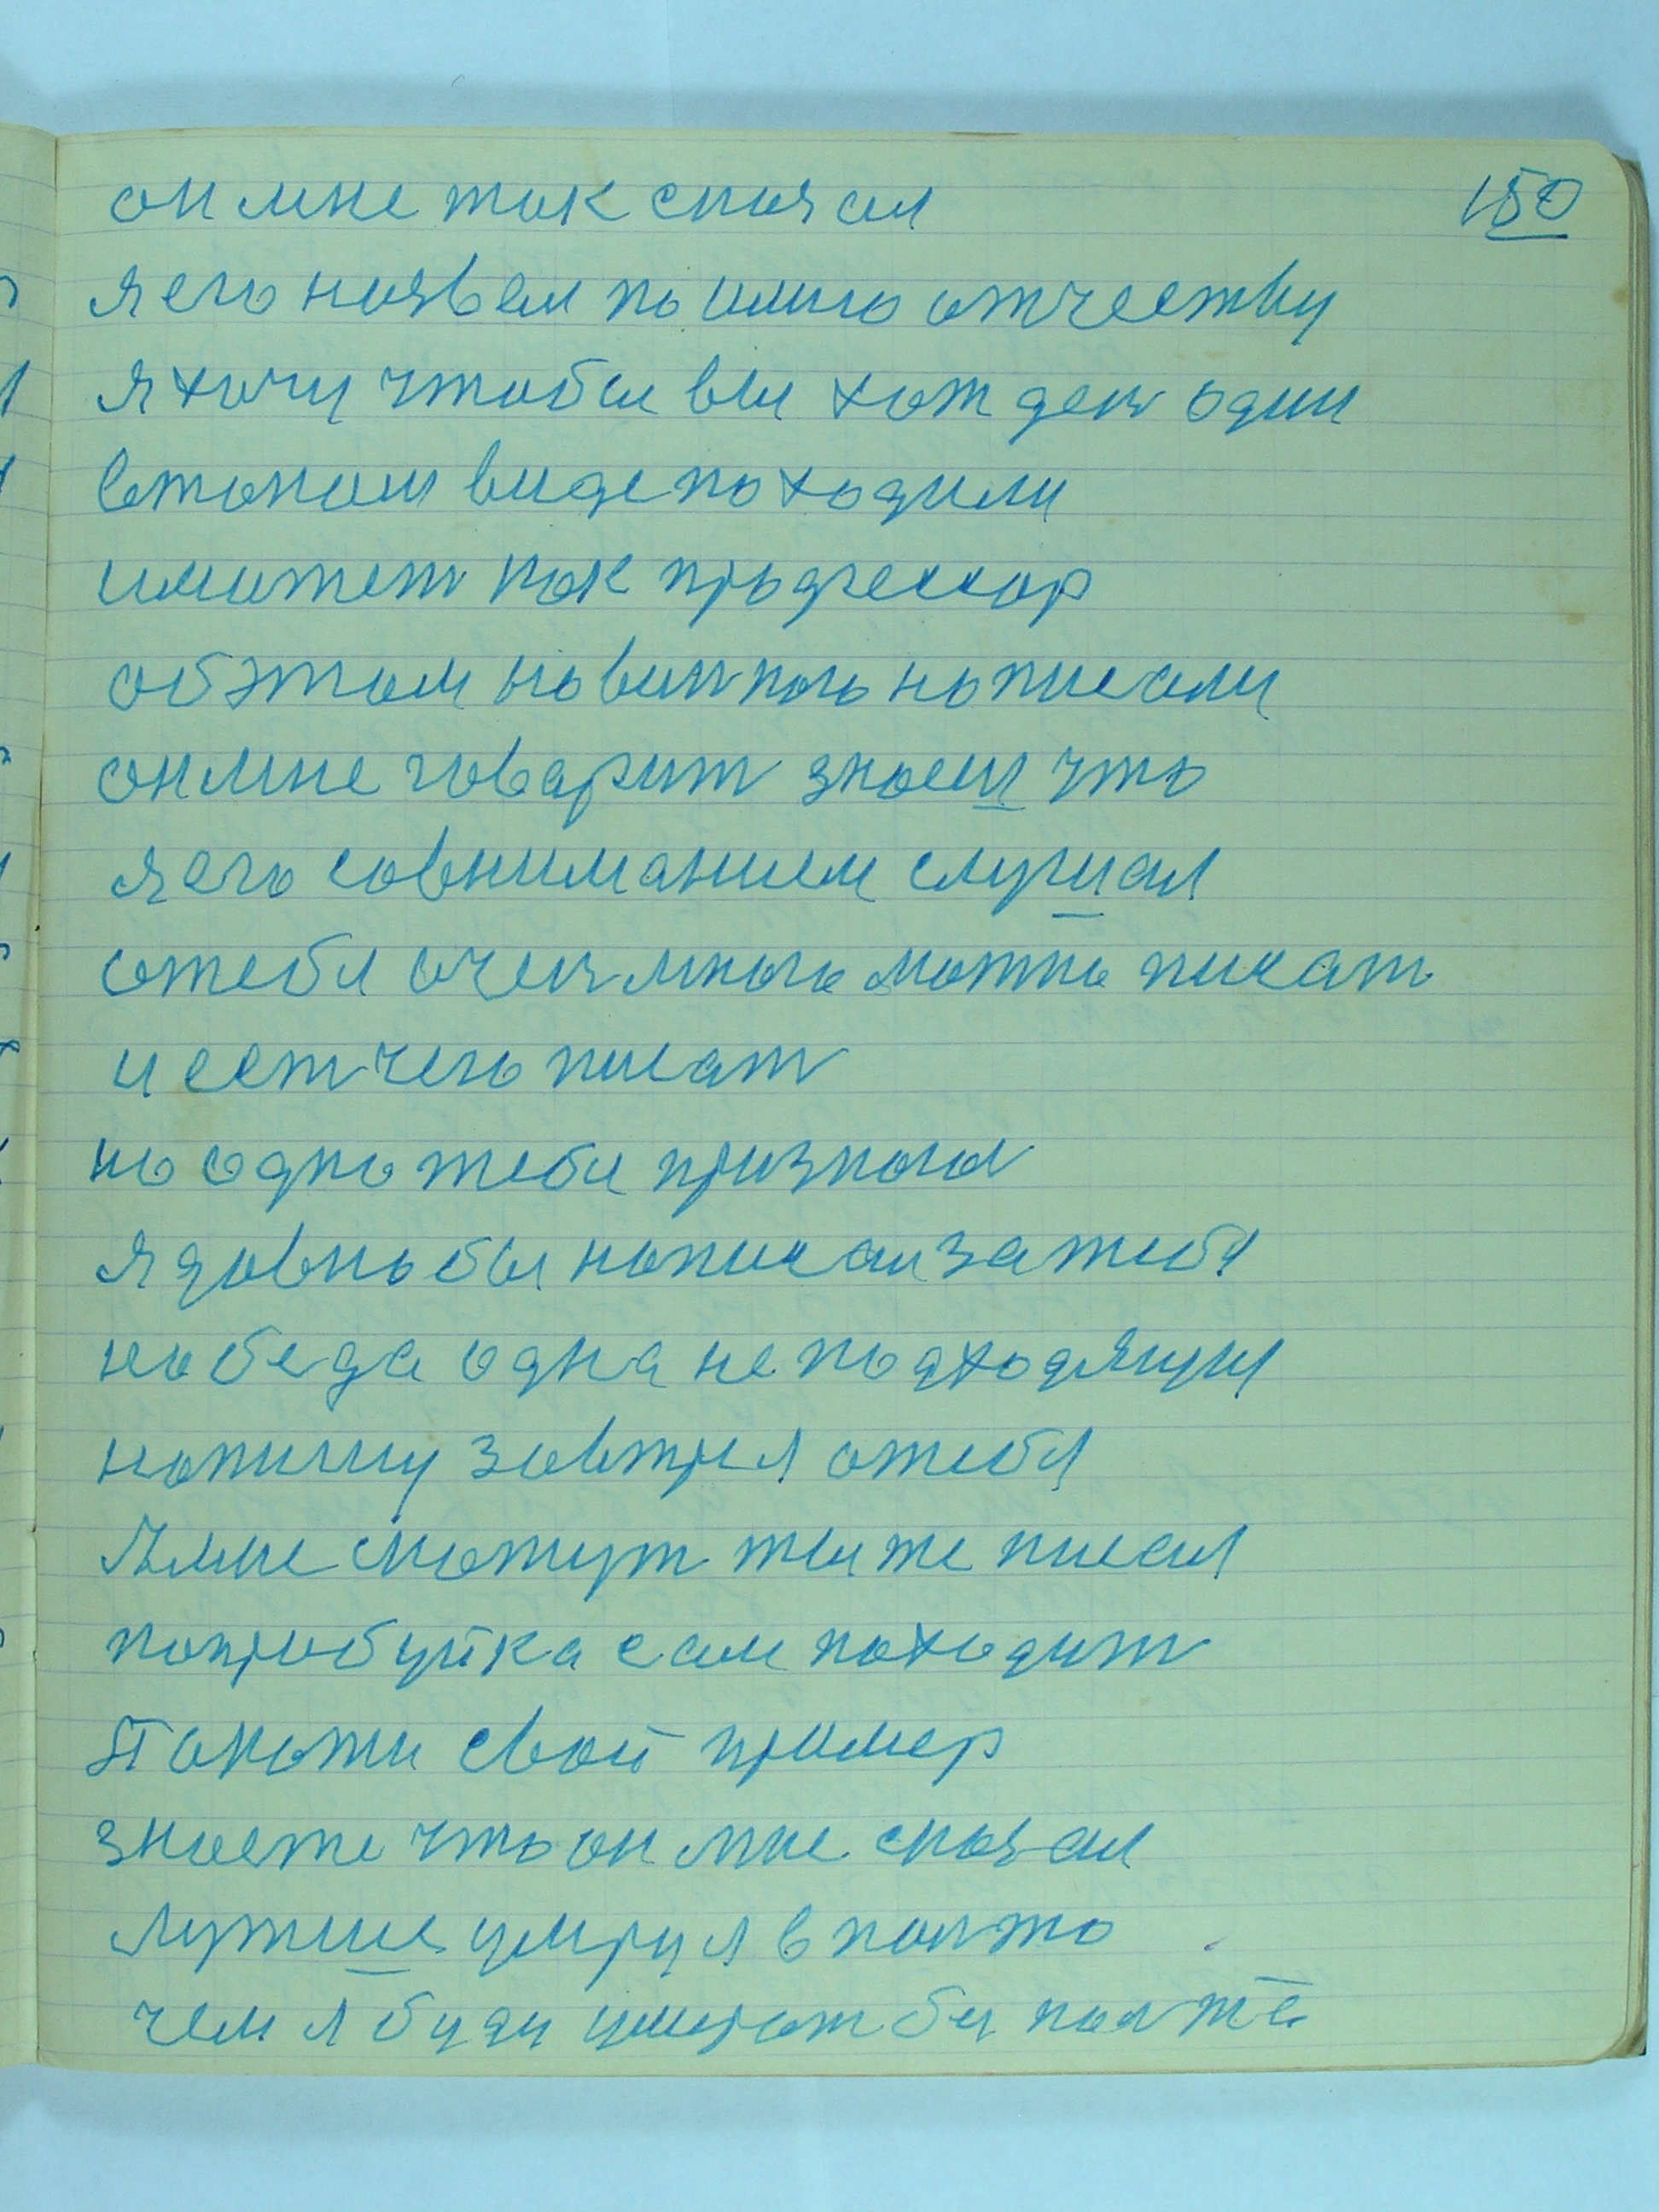 150
он мне так сказал
я его назвал по имию отчеству
я хочу чтобы вы хотя ден один
в таком виде походили
и может как профессор
об этом новинкою написали
он мне говарит знаеш что
я его совниманием слушал
о тебя очен много можно писат
и ест чего писат
но одно тебя признаю
я давно бы написал за тебя
но беда одна не подходящу
напишу завтря я о тебя
мне скажут ты же писал
попробуйка сам походит
Покажи свой пример
знаете что он мне сказал
лутше умру я в палто
чем я буду умират без палте